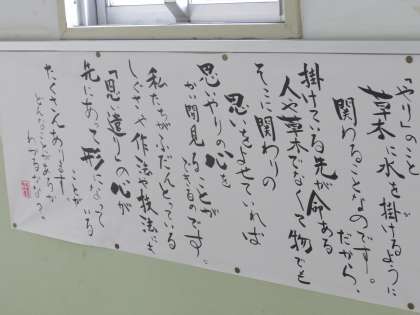 「やり」のこと
草木に水を掛けるように
関わることなのです。だから、
掛けている先が命ある
人や草木でなくて物でも
そこに関わりの
思いをよせていれば
思いやりの心を
かい間見ることが
出来るのです。
私たちがふだんとっている
しぐさや作法や技法にも
「思い遣り」の心が
先にあって形になっている
ことが
たくさんあります。